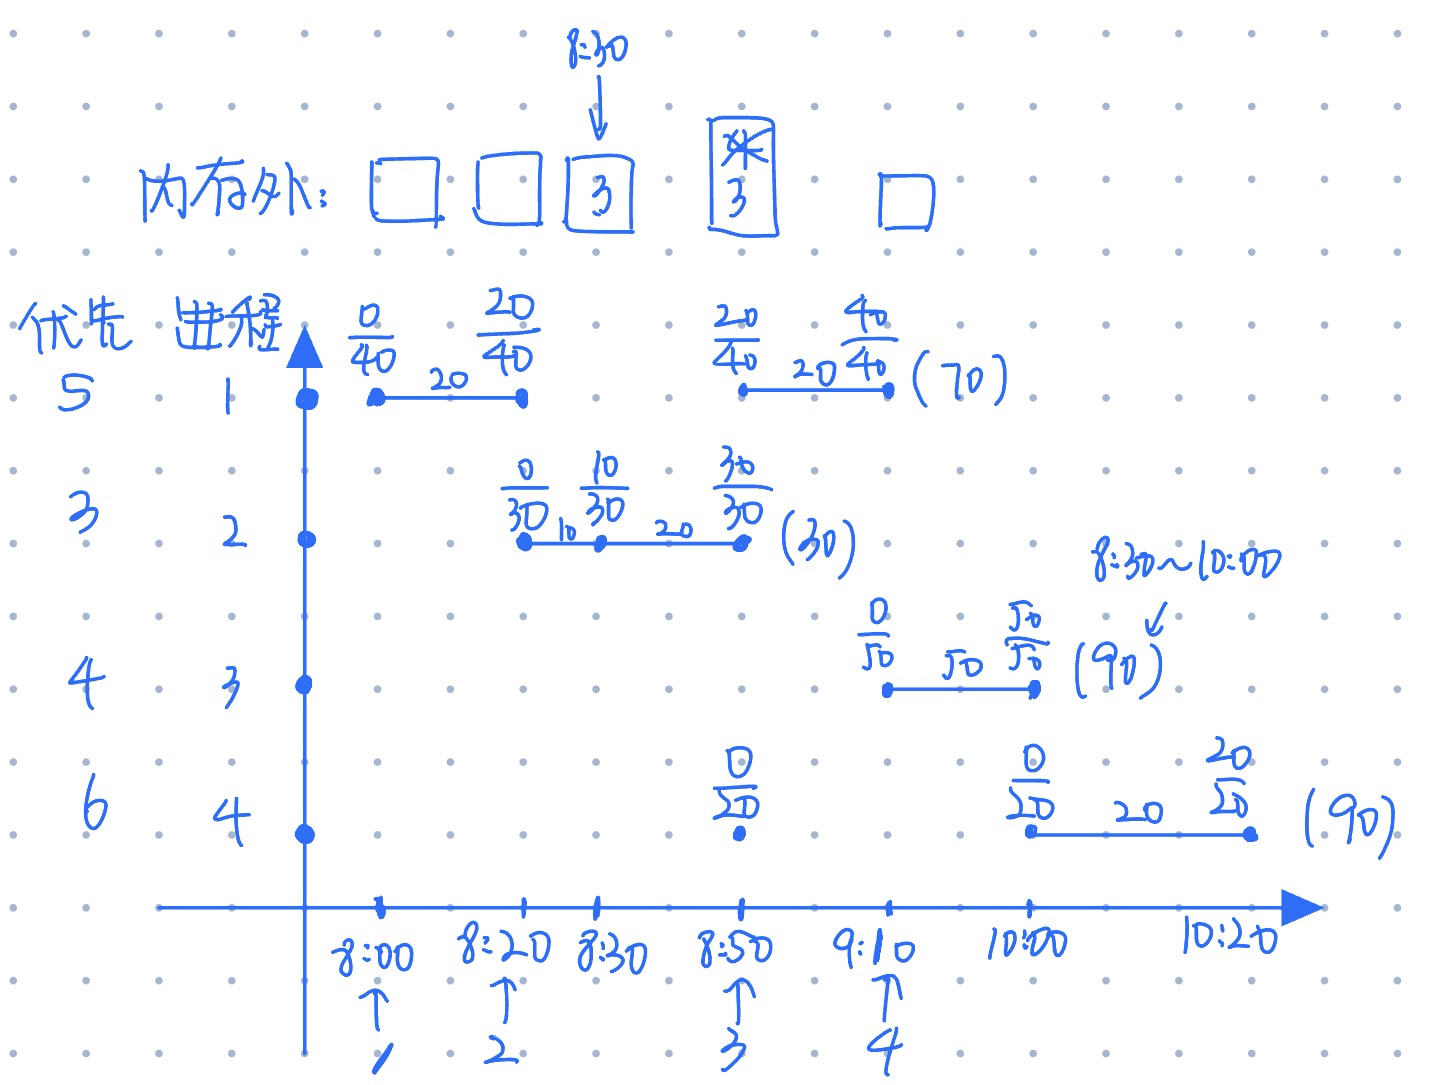 8:30
内存外: 3 3
优先 进程
0/40 20 20/40
20/40 20 40/40 (70)
5 1
0/30 10 10/30 20 30/30 (30)
3 2
8:30~10:00
0/50 50 50/50 (90)
4 3
0/20
0/20 20 20/20 (90)
6 4
8:00 8:20 8:30 8:50 9:10 10:00 10:20
1 2 3 4